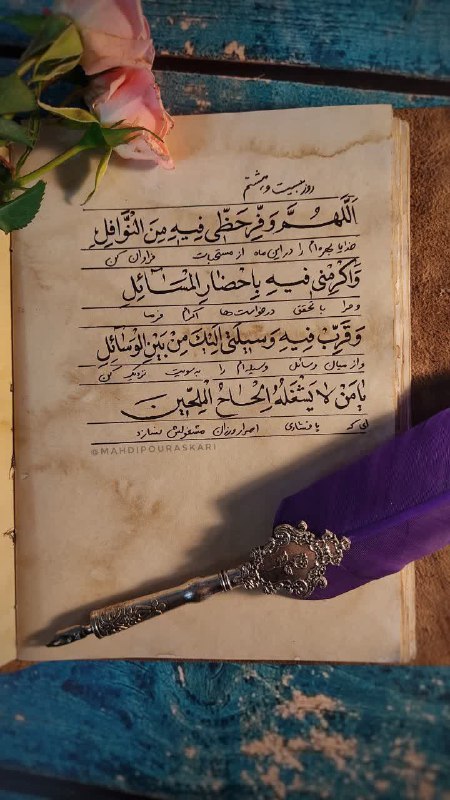 روز بیست و هشتم
اَللّهُمَّ وَفِّرْ حَظّی فیهِ مِنَ النَّوافِلِ
خدایا بهره‌ام را در این ماه از مستحبات فراوان کن
وَاَکْرِمْنی فیهِ بِاِحْضارِ الْمَسآئِلِ
و مرا با تحقق درخواست‌ها اکرام فرما
وَقَرِّبْ فیهِ وَسیلَتی اِلَیْکَ مِنْ بَیْنِ الْوَسآئِلِ
و از میان وسائل وسیله‌ام را به سویت نزدیک کن
یا مَنْ لا یَشْغَلُهُ اِلْحاحُ الْمُلِحّینَ
ای که پافشاری اصرارورزان مشغولش نسازد
@MAHDIPOURASKARI